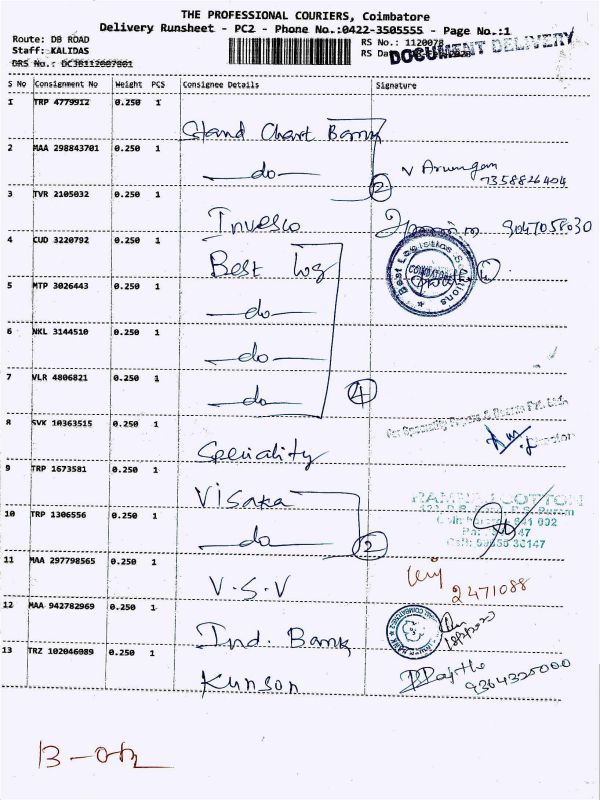 THE PROFESSIONAL COURIERS, Coimbatore
Delivery Runsheet - PC2 - Phone No.:0422-3505555 - Page No.:1
Route: DB ROAD
RS No.: 1120078
Staff: KALIDAS
RS Da
DOCUMENT DELIVERY
DRS No.: DC30112007801
S No Consignment No Weight PCS Consignee Details Signature
1 TRP 4779912 0.250 1 Stand Chart Bank
2 MAA 298843701 0.250 1 do 2 V Arumgam
7358824404
3 TVR 2105032 0.250 1 Invesco 9047058030
4 CUD 3220792 0.250 1 Best Log
Best Logistics Solutions
5 MTP 3026443 0.250 1 do
6 NKL 3144510 0.250 1 do
7 VLR 4806821 0.250 1 do 4
For Speciality & Pvt. Ltd.
Director
8 SVK 10363515 0.250 1 Speciality
9 TRP 1673581 0.250 1 Visaka
COTTON
10 TRP 1306556 0.250 1 do 2
11 MAA 297798565 0.250 1 V.S.V 2471088
12 MAA 942782969 0.250 1 Ind. Bank
13 TRZ 102046089 0.250 1 Kunson
9364325000
13-